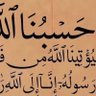 حَسْبُنَا اللَّهُ
يُؤْتِينَا اللَّهُ مِن
رَسُولُهُ إِنَّا إِلَى اللَّهِ